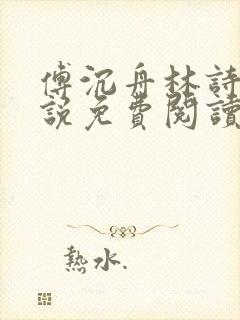 傅沉舟林詩
說免費閱讀
熱水.